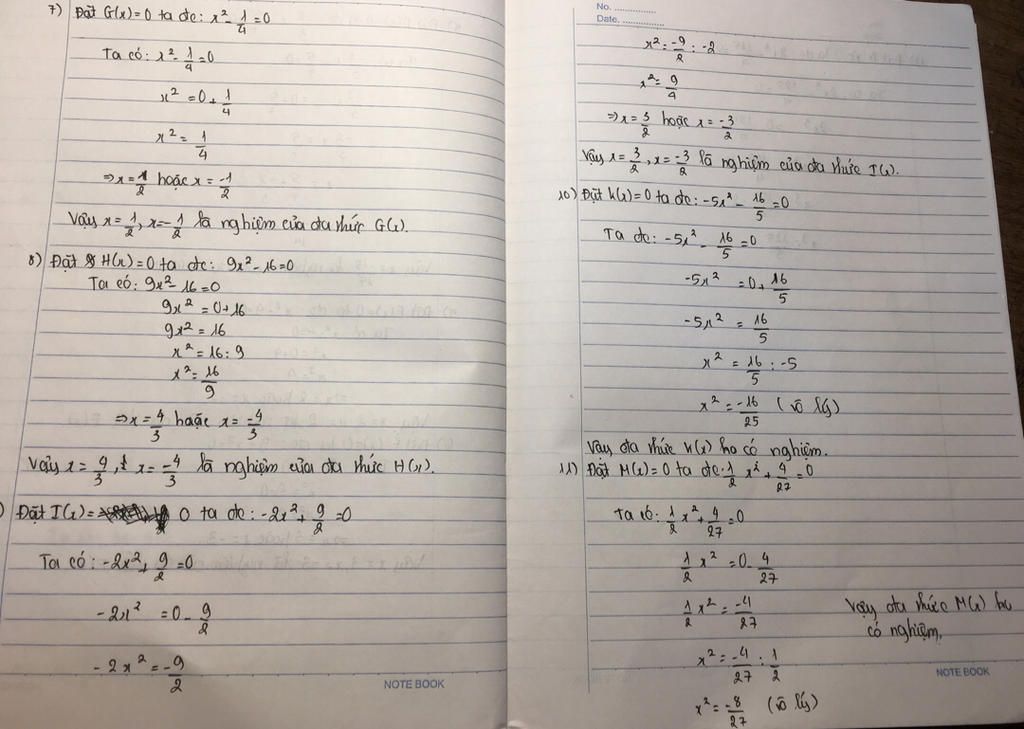 7) Đặt G(x)=0 ta đc: x² - 1/4 = 0
Ta có: x² - 1/4 = 0
x² = 0 + 1/4
x² = 1/4
⇒ x = 1/2 hoặc x = -1/2
Vậy x = 1/2, x = -1/2 là nghiệm của đa thức G(x).
8) Đặt H(x) = 0 ta đc: 9x² - 16 = 0
Ta có: 9x² - 16 = 0
9x² = 0 + 16
9x² = 16
x² = 16 : 9
x² = 16/9
⇒ x = 4/3 hoặc x = -4/3
Vậy x = 4/3, x = -4/3 là nghiệm của đa thức H(x).
) Đặt I(x) = 0 ta đc: -2x² + 9/2 = 0
Ta có: -2x² + 9/2 = 0
-2x² = 0 - 9/2
-2x² = -9/2
NOTE BOOK
No. ...............
Date. ...............
x² = -9/2 : -2
x² = 9/4
⇒ x = 3/2 hoặc x = -3/2
Vậy x = 3/2, x = -3/2 là nghiệm của đa thức I(x).
10) Đặt K(x) = 0 ta đc: -5x² - 16/5 = 0
Ta đc: -5x² - 16/5 = 0
-5x² = 0 + 16/5
-5x² = 16/5
x² = 16/5 : -5
x² = -16/25 (vô lý)
Vậy đa thức K(x) ko có nghiệm.
11) Đặt M(x) = 0 ta đc: 1/2 x² + 4/27 = 0
Ta có: 1/2 x² + 4/27 = 0
1/2 x² = 0 - 4/27
1/2 x² = -4/27
x² = -4/27 : 1/2
x² = -8/27 (vô lý)
Vậy đa thức M(x) ko
có nghiệm.
NOTE BOOK